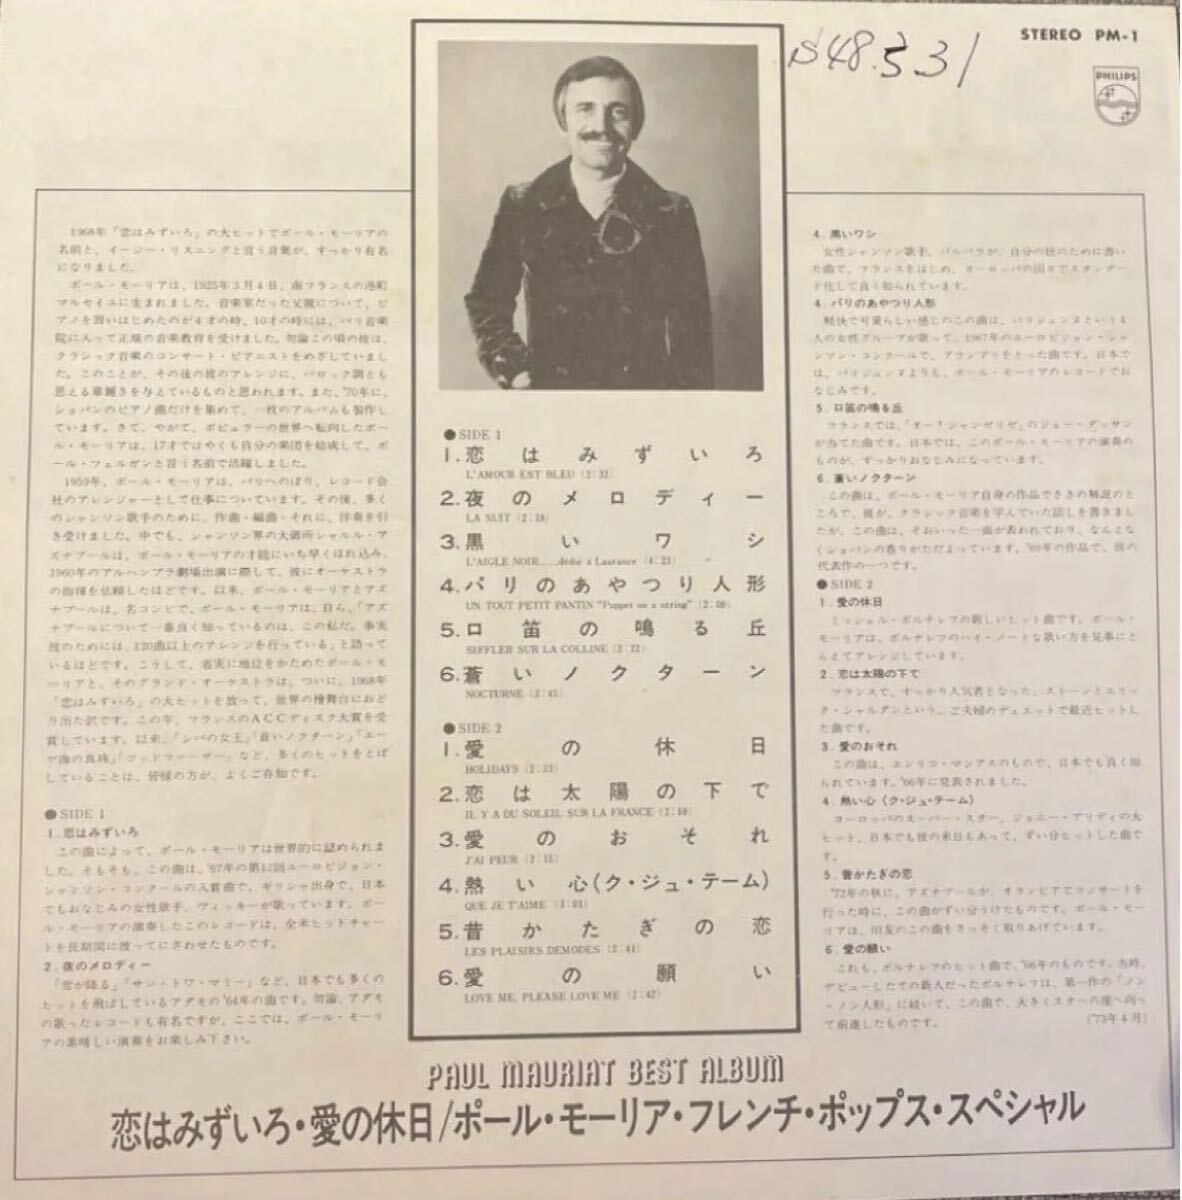 S48.3 31
STEREO PM-1
PHILIPS
1968年「恋はみずいろ」の大ヒットでポール・モーリアの
名前と、イージー・リスニングと言う言葉が、すっかり有名
になりました。
ポール・モーリアは、1925年3月4日、南フランスの港町
マルセイユに生まれました。音楽家だった父親について、ピ
アノを習いはじめたのが4才の時、10才の時には、パリ音楽
院に入って正規の音楽教育を受けました。勿論この頃の彼は、
クラシック音楽のコンサート・ピアニストをめざしていまし
た。このことが、その後の彼のアレンジに、バロック調とも
思える華麗さを与えているものと思われます。また、'70年に、
ショパンのピアノ曲だけを集めて、一枚のアルバムも製作し
ています。さて、やがて、ポピュラーの世界へ転向したポー
ル・モーリアは、17才ではやくも自分の楽団を結成して、ポ
ール・フェルガンと言う名前で活躍しました。
1959年、ポール・モーリアは、パリへのぼり、レコード会
社のアレンジャーとして仕事についています。その後、多く
のシャンソン歌手のために、作曲・編曲・それに、伴奏を引
き受けました。中でも、シャンソン界の大御所シャルル・ア
ズナブールは、ポール・モーリアの才能にいち早くほれ込み、
1960年のアルハンブラ劇場出演に際して、彼にオーケストラ
の指揮を依頼したほどです。以来、ポール・モーリアとアズ
ナブールは、名コンビで、ポール・モーリアは、自ら、「アズ
ナブールについて一番良く知っているのは、この私だ。事実
彼のためには、120曲以上のアレンジを行っている」と語って
いるほどです。こうして、着実に地位をかためたポール・モ
ーリアと、そのグランド・オーケストラは、ついに、1968年
「恋はみずいろ」の大ヒットを放って、世界の檜舞台におど
り出た訳です。この年、フランスのACCディスク大賞を受
賞しています。以来、「シバの女王」「蒼いノクターン」「エー
ゲ海の真珠」「ゴッドファーザー」など、多くのヒットをとば
していることは、皆様の方が、よくご存知です。
●SIDE 1
1.恋はみずいろ
この曲によって、ポール・モーリアは世界的に認められま
した。そもそも、この曲は、'67年の第12回ユーロビジョン・
シャンソン・コンクールの入賞曲で、ギリシャ出身で、日本
でもおなじみの女性歌手、ヴィッキーが歌っています。ポー
ル・モーリアの演奏したこのレコードは、全米ヒットチャー
トを長期間に渡ってにぎわせたものです。
2.夜のメロディー
「雪が降る」「サン・トワ・マミー」など、日本でも多くの
ヒットを飛ばしているアダモの'64年の曲です。勿論、アダモ
の歌ったレコードも有名ですが、ここでは、ポール・モーリ
アの素晴しい演奏をお楽しみ下さい。
●SIDE 1
1.恋はみずいろ
L'AMOUR EST BLEU (2:32)
2.夜のメロディー
LA NUIT (2:18)
3.黒いワシ
L'AIGLE NOIR......dédié à Laurance (4:23)
4.パリのあやつり人形
UN TOUT PETIT PANTIN "Puppet on a string" (2:08)
5.口笛の鳴る丘
SIFFLER SUR LA COLLINE (2:22)
6.蒼いノクターン
NOCTURNE (2:45)
●SIDE 2
1.愛の休日
HOLIDAYS (2:33)
2.恋は太陽の下で
IL Y A DU SOLEIL SUR LA FRANCE (2:18)
3.愛のおそれ
J'AI PEUR (2:15)
4.熱い心(ク・ジュ・テーム)
QUE JE T'AIME (3:01)
5.昔かたぎの恋
LES PLAISIRS DEMODES (2:41)
6.愛の願い
LOVE ME, PLEASE LOVE ME (2:42)
4.黒いワシ
女性シャンソン歌手、バルバラが、自分の姪のために書い
た曲で、フランスをはじめ、ヨーロッパの国々でスタンダー
ド化して良く知られています。
4.パリのあやつり人形
軽快で可愛らしい感じのこの曲は、パリジェンヌという4
人の女性グループが歌って、1967年のユーロビジョン・シャ
ンソン・コンクールで、グランプリをとった曲です。日本で
は、パリジェンヌよりも、ポール・モーリアのレコードでお
なじみです。
5.口笛の鳴る丘
フランスでは、「オー!シャンゼリゼ」のジョー・ダッサン
が当てた曲です。日本では、このポール・モーリアの演奏の
ものが、すっかりおなじみになっています。
6.蒼いノクターン
この曲は、ポール・モーリア自身の作品でさきの解説のと
ころで、彼が、クラシック音楽を学んでいた話しを書きまし
たが、この曲は、そおいった一面が表われており、なんとな
くショパンの香りがただよっています。'69年の作品で、彼の
代表作の一つです。
●SIDE 2
1.愛の休日
ミッシェル・ポルナレフの新しいヒット曲です。ポール・
モーリアは、ポルナレフのハイ・ノートな歌い方を見事にと
らえてアレンジしています。
2.恋は太陽の下で
フランスで、すっかり人気者となった、ストーンとエリッ
ク・シャルダンという、ご夫婦のデュエットで最近ヒットし
た曲です。
3.愛のおそれ
この曲は、エンリコ・マシアスのもので、日本でも良く知
られています。'66年に発表されました。
4.熱い心(ク・ジュ・テーム)
ヨーロッパのスーパー・スター、ジョニー・アリディの大
ヒット、日本でも彼の来日もあって、ずい分ヒットした曲で
す。
5.昔かたぎの恋
'72年の秋に、アズナブールが、オランピアでコンサートを
行った時に、この曲がずい分うけたものです。ポール・モー
リアは、旧友のこの曲をさっそく取りあげています。
6.愛の願い
これも、ポルナレフのヒット曲で、'66年のものです。当時、
デビューしたての新人だったポルナレフは、第一作の「ノン
・ノン人形」に続いて、この曲で、大きくスターの座へ向っ
て前進したものです。 ('73年4月)
PAUL MAURIAT BEST ALBUM
恋はみずいろ・愛の休日/ポール・モーリア・フレンチ・ポップス・スペシャル